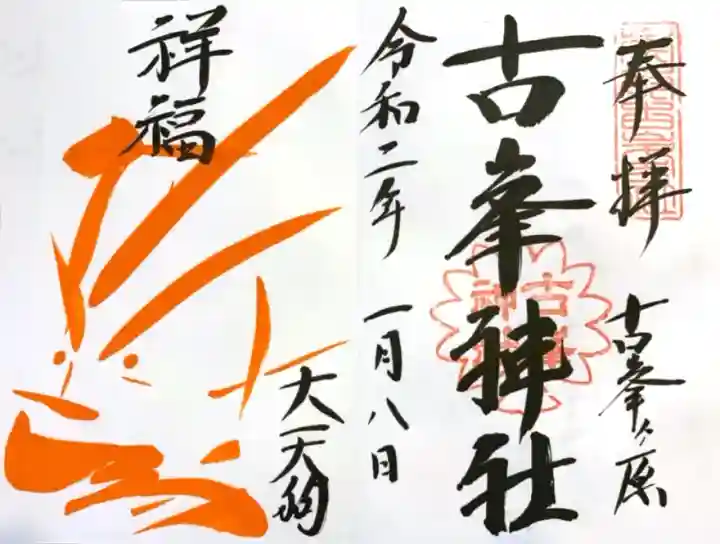 奉拝
古峯ヶ原
古峯神社
令和二年 一月八日
祥福
大天狗